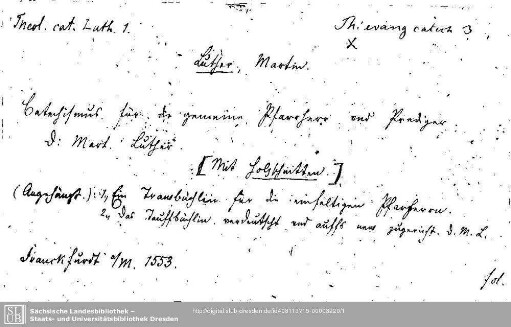 Theol. cat. Luth. 1.
Th. evang. catech 3
X
Luther, Martin.
Catechismus für die gemeine Pfarrherr und Prediger
D: Mart. Luther
[Mit Holzschnitten.]
(Angehängt.): 1, Ein Traubüchlin für die einfeltigen Pfarherrn.
2, Das Tauffbüchlin verdeutscht und auffs new zugericht. d. M. L.
Franckfurdt a/M. 1553.
fol.
Sächsische Landesbibliothek –
Staats- und Universitätsbibliothek Dresden